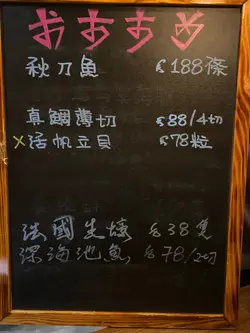 おすすめ
秋刀魚 $188條
真鯛薄切 $88/4切
×活帆立貝 $78粒
法國生蠔 $38隻
深海池魚 $78/2切